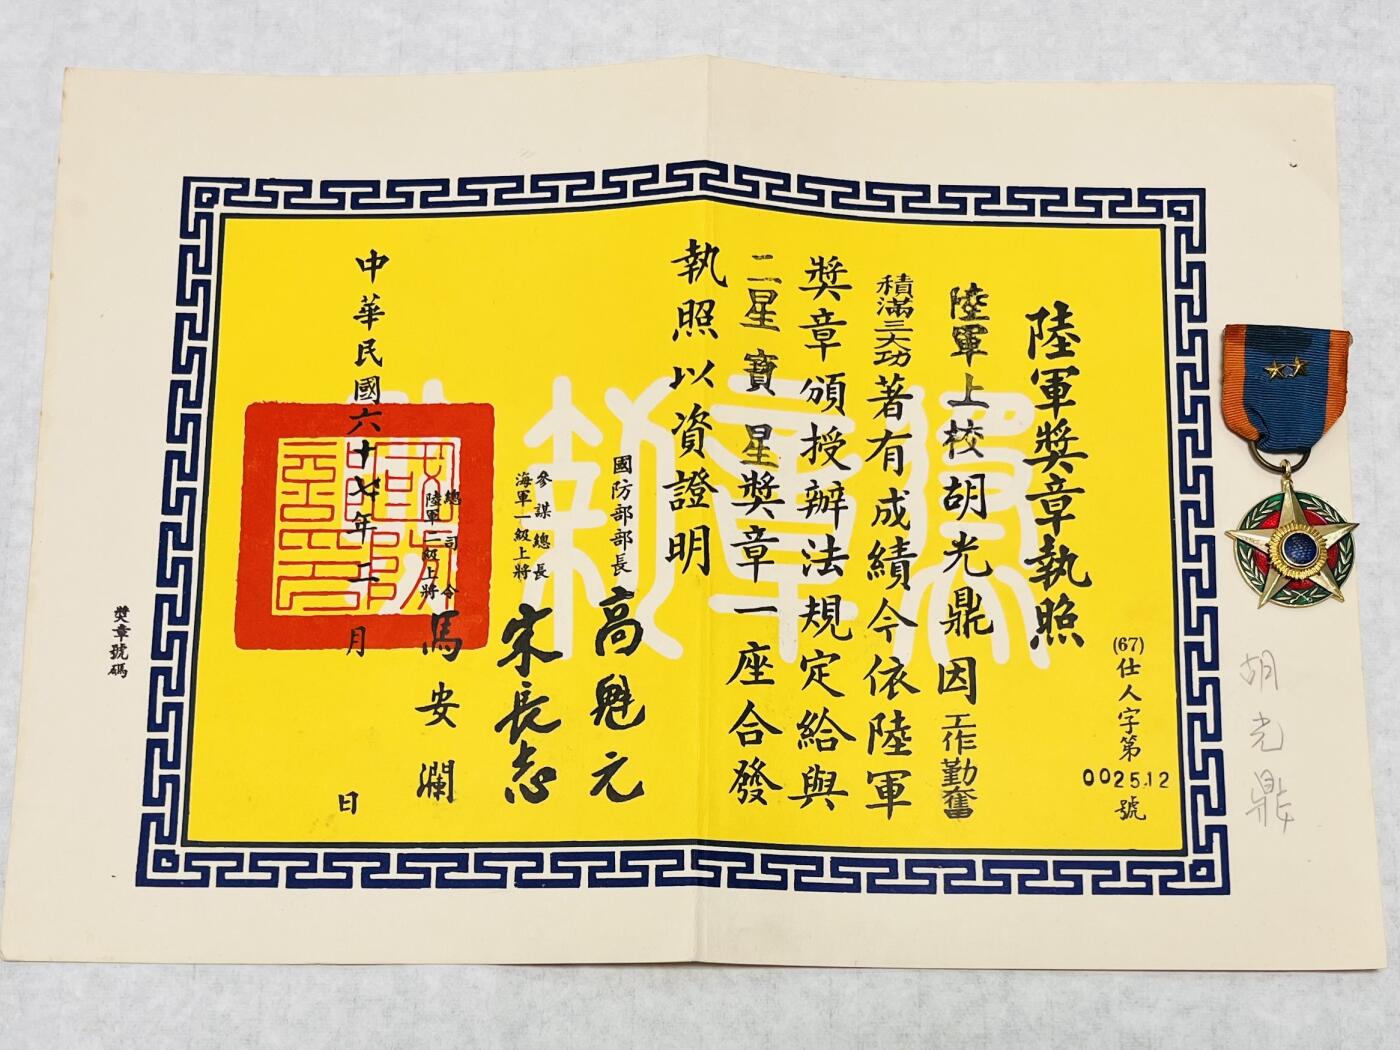 陸軍獎章執照
(67)仕人字第
002512
號
陸軍上校胡光鼎因工作勤奮
積滿三大功著有成績今依陸軍
獎章頒授辦法規定給與
二星寶星獎章一座合發
執照以資證明
國防部部長 高魁元
參謀總長
海軍一級上將
宋長志
總司令
陸軍二級上將
馬安瀾
中華民國六十七年二月 日
獎章號碼
胡光鼎